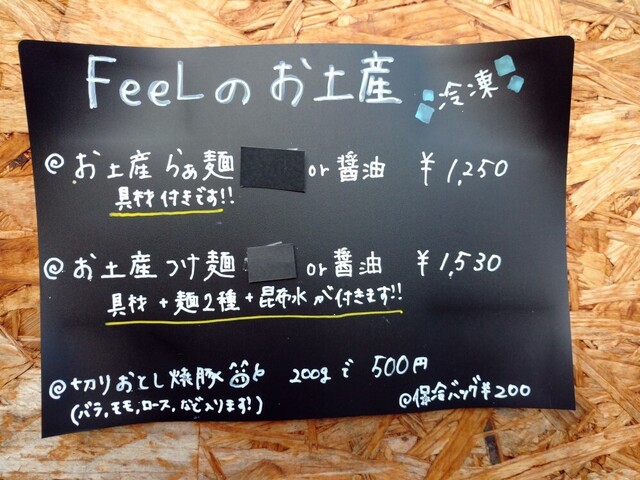 FeeLのお土産 冷凍
@お土産らぁ麺 or 醤油 ¥1,250
具材付きです!!
@お土産つけ麺 or 醤油 ¥1,530
具材+麺2種+昆布水が付きます!!
@切りおとし焼豚 200gで 500円
(バラ,モモ,ロース,など入ります!) @保冷バッグ¥200